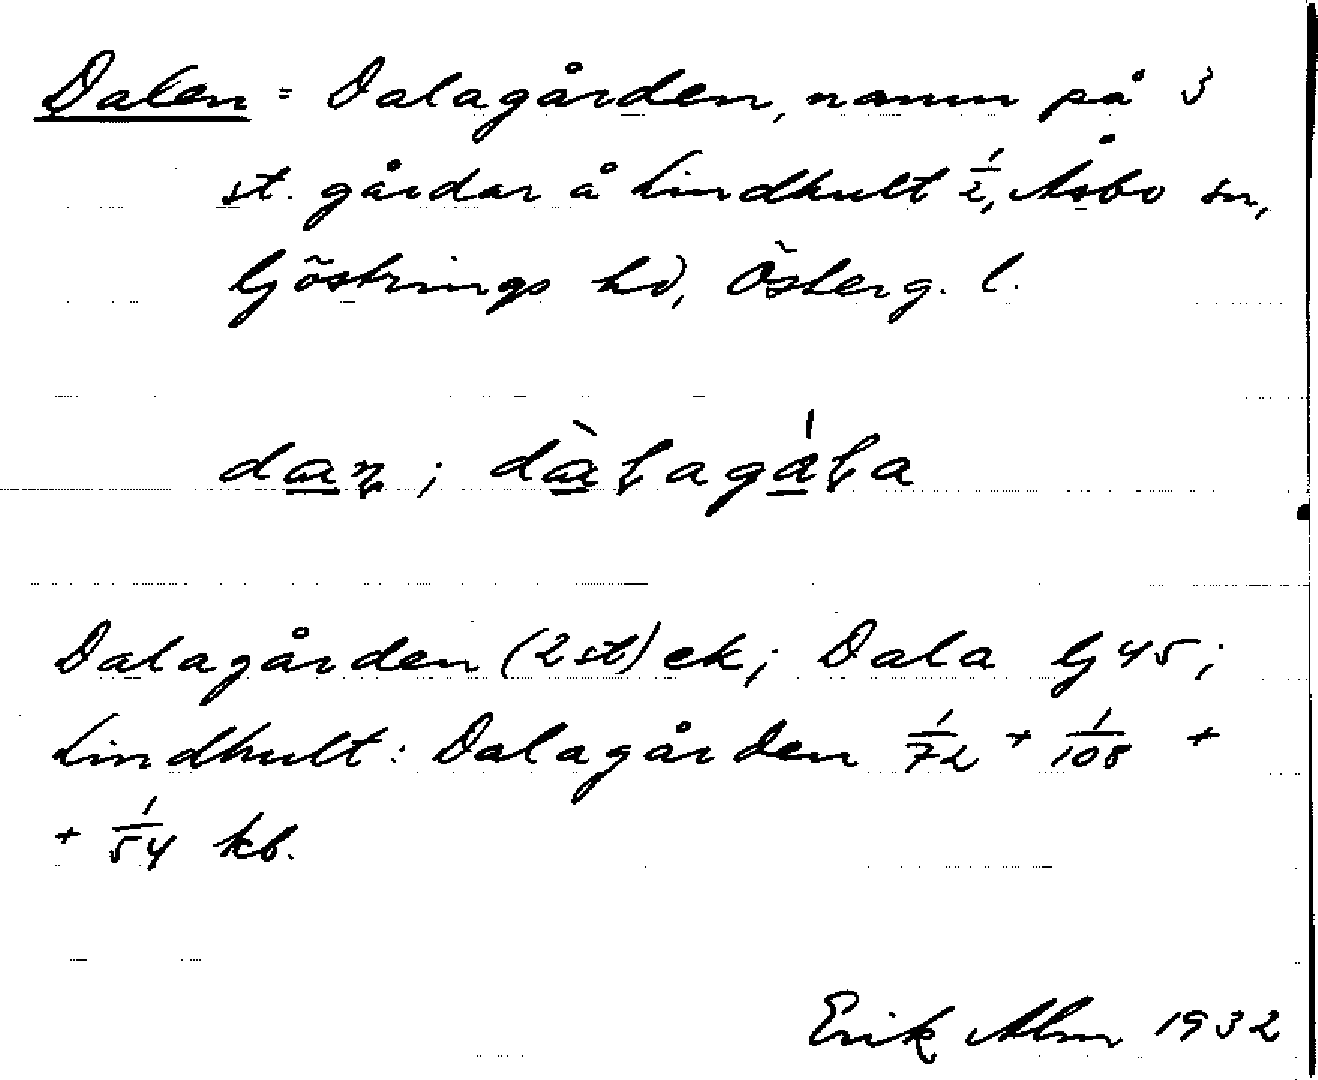 Dalen = Dalagården, namn på 3
st. gårdar å Lindhult 1/2, Åsbo sn,
Göstrings hd, Österg. l.
dan; dàlagála
Dalagården (2 st) ek; Dala G 45;
Lindhult: Dalagården 1/72 + 1/108 +
+ 1/54 kb.
Erik Alm 1932